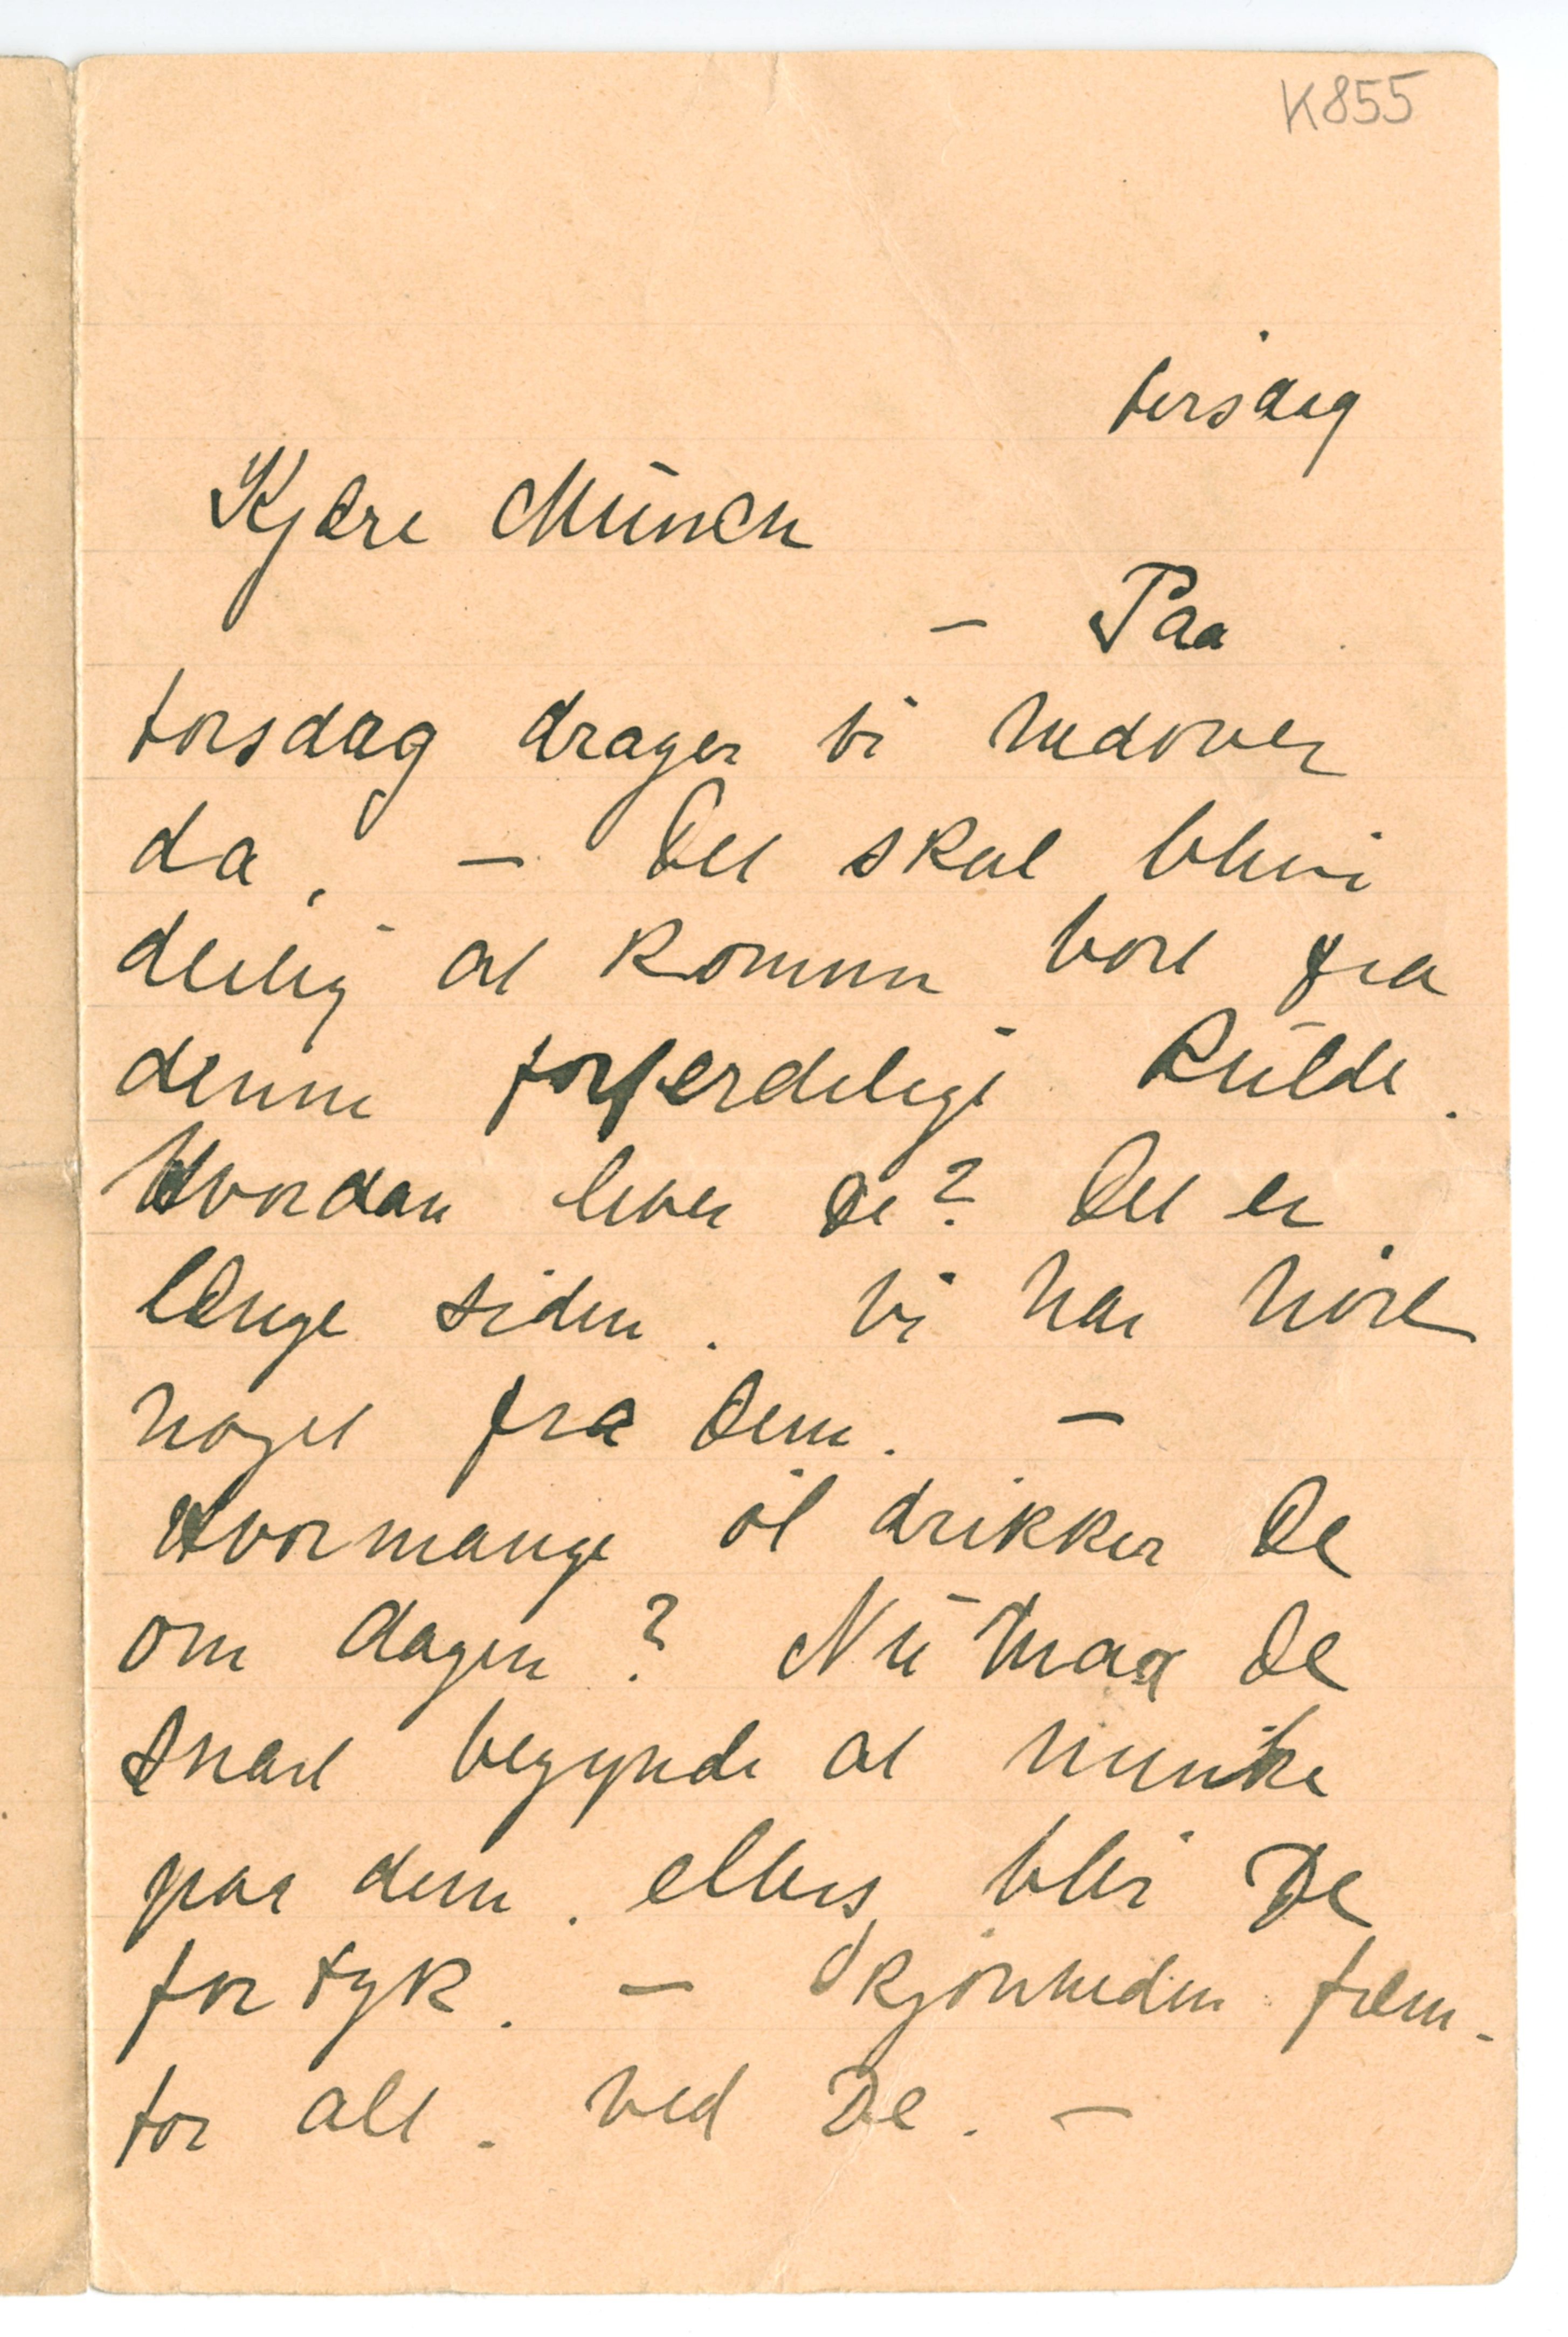 K855
tirsdag
Kjære Münch
– Paa
torsdag drager vi nedover
da, – Det skal blive
deilig at komme bort fra
denne forferdelige kulde.
Hvordan lever De? Det er
længe siden. vi har hört
noget fra Dem. –
Hvormange öl drikker De
om dagen? Nu maa De
snart begynde at minke
paa dem. ellers blir De
for tyk. – Skjönheden frem-
for alt. ved De. –